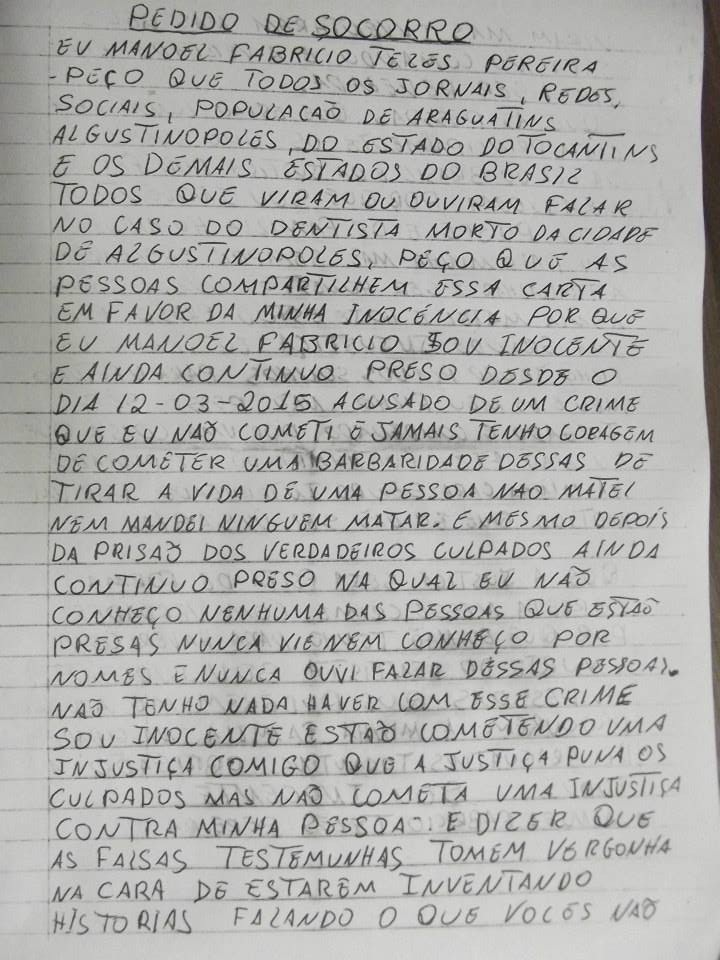 PEDIDO DE SOCORRO
EU MANOEL FABRICIO TELES PEREIRA
- PEÇO QUE TODOS OS JORNAIS, REDES,
SOCIAIS, POPULAÇÃO DE ARAGUATINS
ALGUSTINOPOLES, DO ESTADO DO TOCANTINS
E OS DEMAIS ESTADOS DO BRASIL
TODOS QUE VIRAM OU OUVIRAM FALAR
NO CASO DO DENTISTA MORTO DA CIDADE
DE ALGUSTINOPOLES, PEÇO QUE AS
PESSOAS COMPARTILHEM ESSA CARTA
EM FAVOR DA MINHA INOCÊNCIA POR QUE
EU MANOEL FABRICIO SOU INOCENTE
E AINDA CONTINUO PRESO DESDE O
DIA 12-03-2015 ACUSADO DE UM CRIME
QUE EU NÃO COMETI E JAMAIS TENHO CORAGEM
DE COMETER UMA BARBARIDADE DESSAS DE
TIRAR A VIDA DE UMA PESSOA NAO MATEI
NEM MANDEI NINGUEM MATAR. E MESMO DEPOIS
DA PRISÃO DOS VERDADEIROS CULPADOS AINDA
CONTINUO PRESO NA QUAL EU NÃO
CONHEÇO NENHUMA DAS PESSOAS QUE ESTÃO
PRESAS NUNCA VI E NEM CONHEÇO POR
NOMES E NUNCA OUVI FALAR DESSAS PESSOAS.
NÃO TENHO NADA HAVER COM ESSE CRIME
SOU INOCENTE ESTÃO COMETENDO UMA
INJUSTIÇA COMIGO QUE A JUSTIÇA PUNA OS
CULPADOS MAS NÃO COMETA UMA INJUSTIÇA
CONTRA MINHA PESSOA. E DIZER QUE
AS FALSAS TESTEMUNHAS TOMEM VERGONHA
NA CARA DE ESTAREM INVENTANDO
HISTORIAS FALANDO O QUE VOCES NÃO